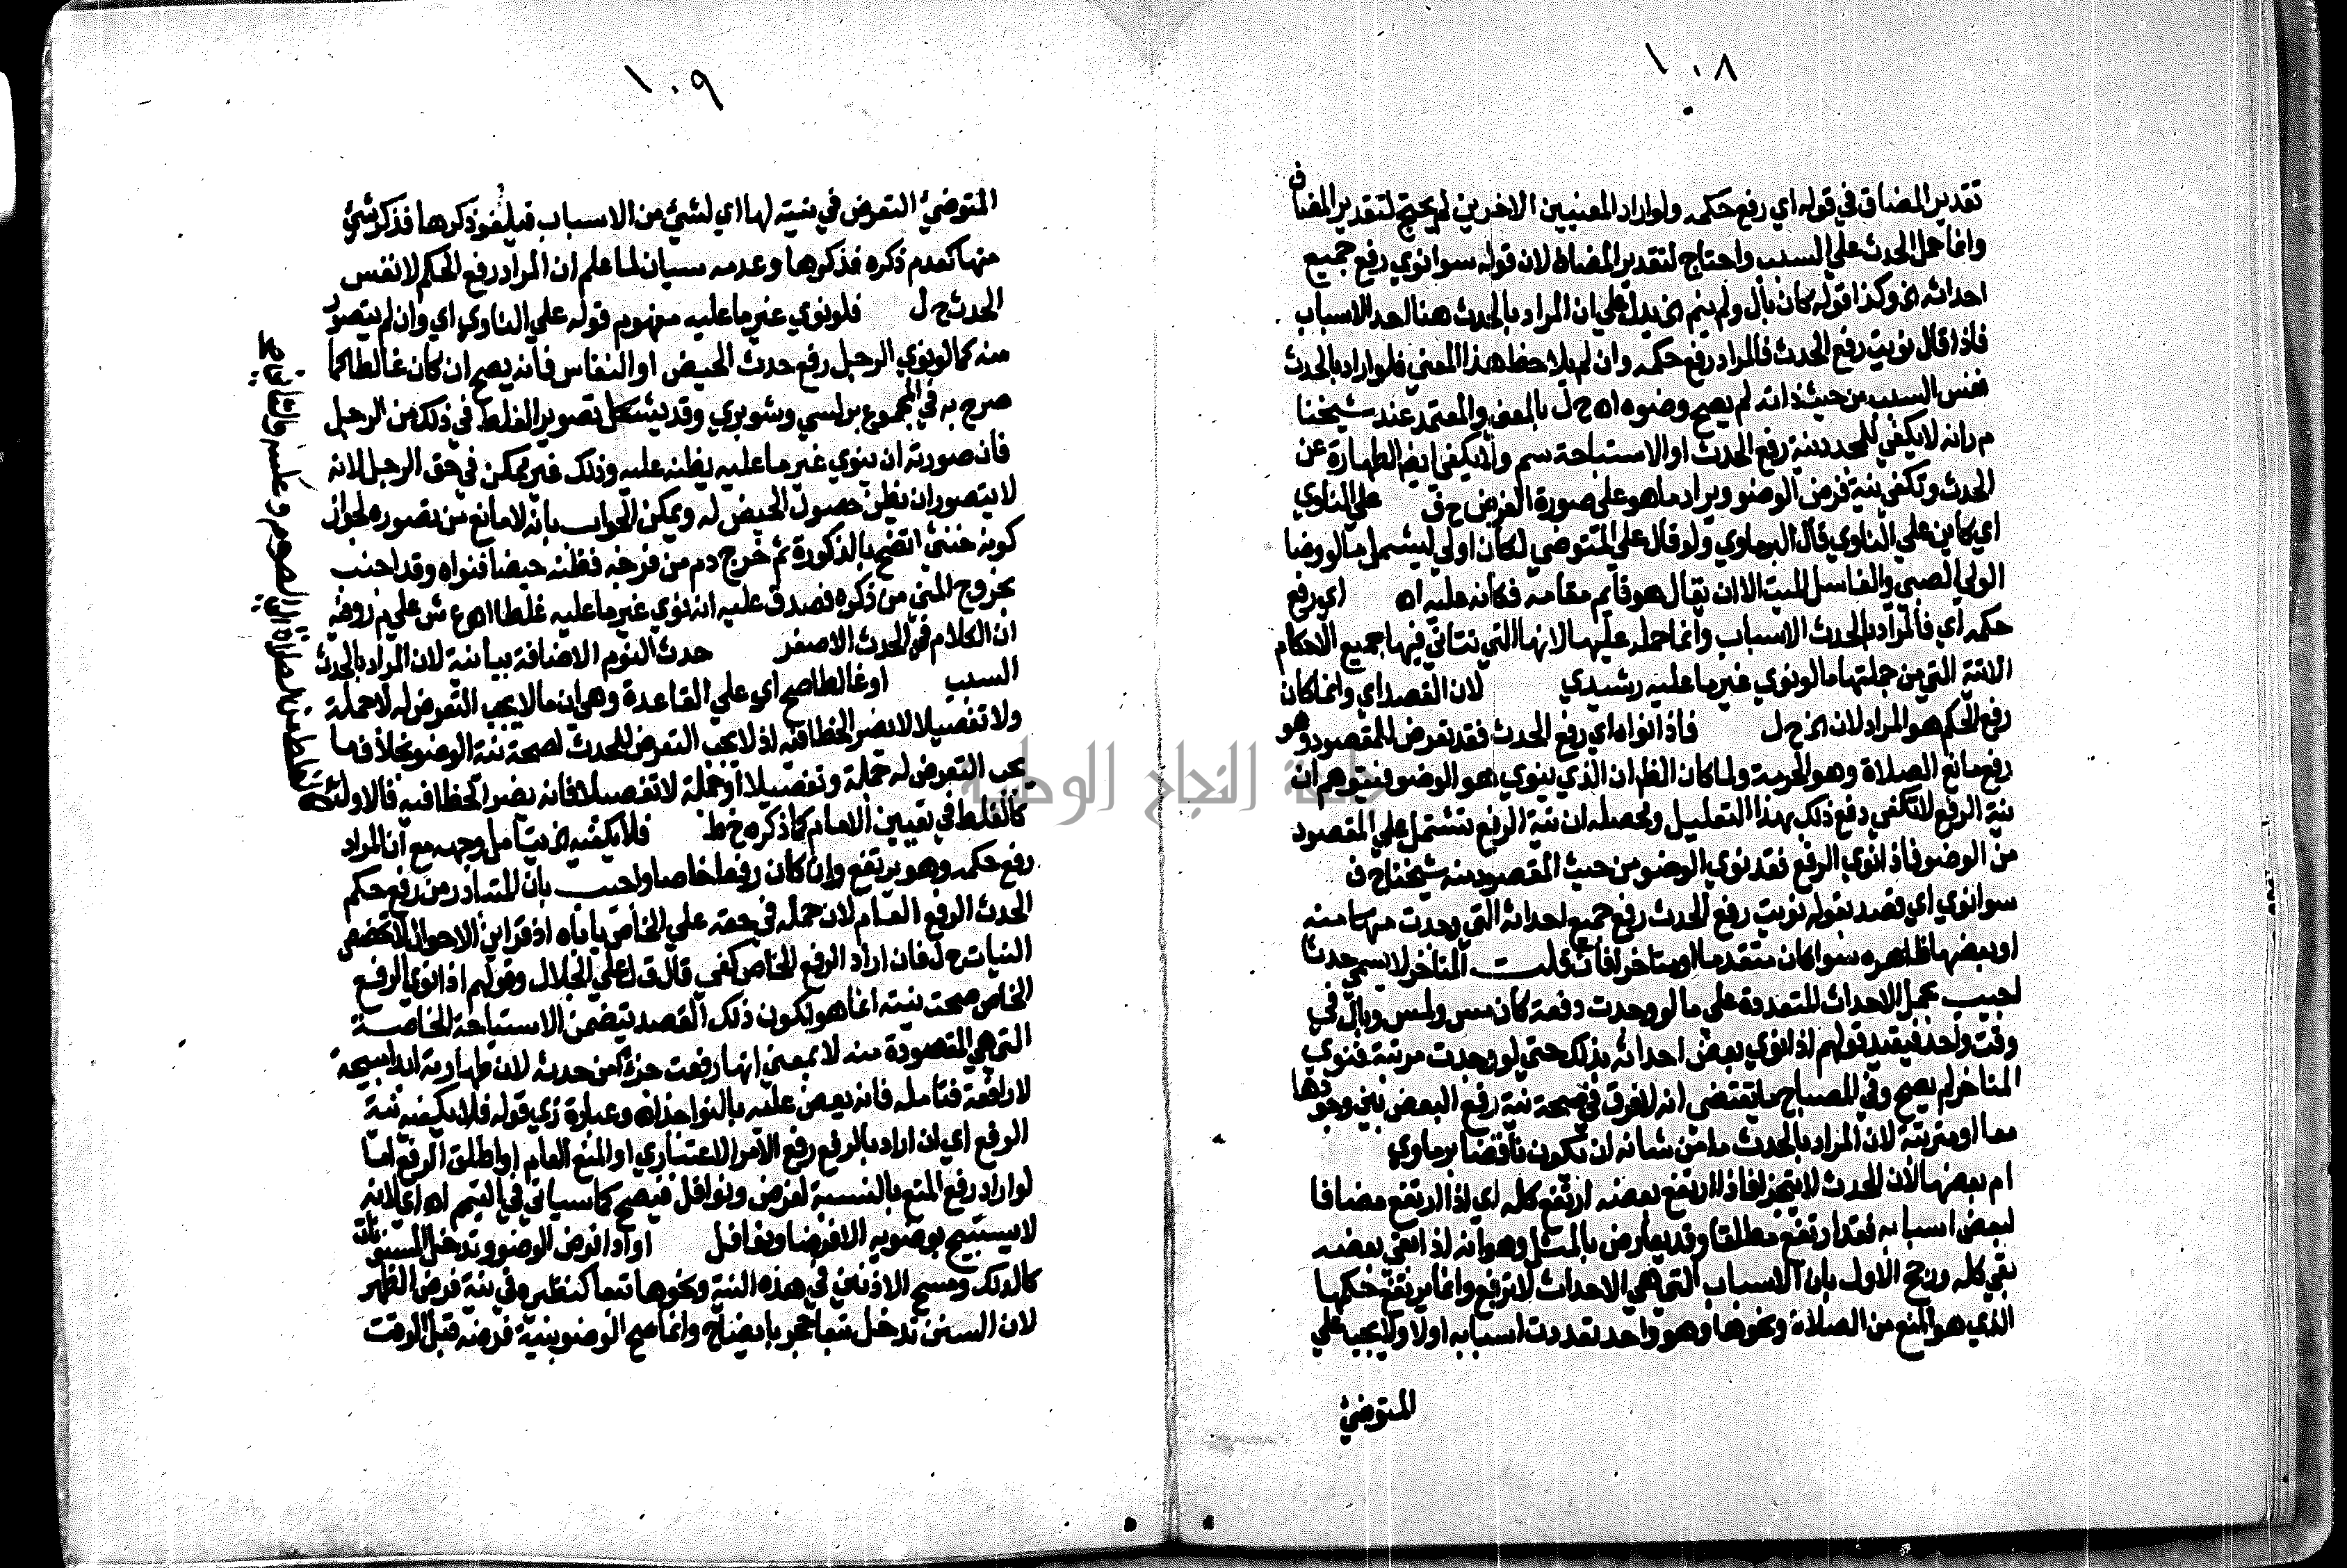 ١٠٨
تقدير المضاف في قوله اي رفع حكمه ولو اراد المعنيين الاخرين لم يحتج لتقدير المضاف
وانما حمل الحدث على السبب واحتاج لتقدير المضاف لان قوله سوا نوي رفع جميع
احداثه الخ وكذا قوله كان بال ولم ينم الخ يدل على ان المراد بالحدث هنا احد الاسباب
فاذا قال نويت رفع الحدث فالمراد رفع حكمه وان لم يلاحظ هذا المعني فلو اراد بالحدث
نفس السبب من حيث ذاته لم يصح وضوه اه ح ل بالمعنى والمعتمد عند شيخنا
م ر انه لا يكفي للمجدد نية رفع الحدث او الاستباحة سم ولا يكفي ايضا الطهارة عن
الحدث وتكفي نية فرض الوضو ويراد ما هو على صورة الفرض ح ف على الناوي
اي كاين على الناوي قال البرماوي ولو قال على المتوضي لكان اولى ليشمل ما لو وضا
الولي الصبي والغاسل للميت الا ان يقال هو قايم مقامه فكانه عليه اه اي رفع
حكمه اي فالمراد بالحدث الاسباب وانما حمله عليها لانها التي يتاتى فيها جميع الاحكام
الاتية التي من جملتها ما لو نوي غير ما عليه رشيدي لان القصد اي وانما كان
رفع الحكم هو المراد لان الخ ح ل فاذا نواه اي رفع الحدث فقد تعرض للمقصود وهو
رفع مانع الصلاة وهو الحرمة ولما كان الظ ان الذي ينوي هو الوضو فيتوهم ان
نية الرفع لا تكفي دفع ذلك بهذا التعليل ومحصله ان نية الرفع تشتمل على المقصود
من الوضو فاذا نوي الرفع فقد نوي الوضو من حيث المقصود منه شيخنا ح ف
سوا نوي اي قصد بقوله نويت رفع الحدث رفع جميع احداثه التي وجدت منه
او بعضها ظاهره سوا كان متقدما او متاخرا فان قلت المتاخر لا يسمى حدثا
اجيب بحمل الاحداث المتعددة على ما لو وجدت دفعة كان مس ولمس وبال في
وقت واحد فيقيد قولهم اذا نوي بعض احداثه بذلك حتى لو وجدت مرتبة فنوي
المتاخر لم يصح وفي المصباح ما يقتضي انه لا فرق في صحة نية رفع البعض بين وجودها
معا او مرتبة لان المراد بالحدث ما من شانه ان يكون ناقضا برماوي
ام بعضها لان الحدث لا يتجزا فاذا ارتفع بعضه ارتفع كله اي اذا ارتفع مضافا
لبعض اسبابه فقد ارتفع مطلقا وقد يعارض بالمثل وهو انه اذا بقي بعضه
بقي كله ورجح الاول بان الاسباب التي هي الاحداث لا ترتفع وانما يرتفع حكمها
الذي هو المنع من الصلاة ونحوها وهو واحد تعددت اسبابه اولا ولا يجب على
المتوضئ
١٠٩
المتوضئ التعرض في نيته لها اي لشئ من الاسباب فيلغو ذكرها فذكر شئ
منها كعدم ذكره فذكرها وعدمه سيان لما علم ان المراد رفع الحكم لا نفس
الحدث ح ل فلو نوي غير ما عليه مفهوم قوله على الناوي اي وان لم يتصور
منه كما لو نوي الرجل رفع حدث الحيض او النفاس فانه يصح ان كان غالطا كما
صرح به في المجموع برلسي وشوبري وقد يشكل تصوير الغلط في ذلك من الرجل
فان صورته ان ينوي غير ما عليه يظنه عليه وذلك غير ممكن في حق الرجل لانه
لا يتصور ان يظن حصول الحيض له ويمكن الجواب بانه لا مانع من تصوره لجواز
كونه خنثي اتضح بالذكورة ثم خرج دم من فرجه فظنه حيضا فنواه وقد اجنب
بخروج المني من ذكره فصدق عليه انه نوي غير ما عليه غلطا اه ع ش على م ر وفيه
ان الكلام في الحدث الاصغر حدث النوم الاضافة بيانية لان المراد بالحدث
السبب او غالطا صح اي على القاعدة وهي ان ما لا يجب التعرض له لا جملة
ولا تفصيلا لا يضر الخطا فيه اذ لا يجب التعرض للحدث لصحة نية الوضو بخلاف ما
يجب التعرض له جملة وتفصيلا او جملة لا تفصيلا فانه يضر الخطا فيه فالاول
كالغلط من الصلاة الى الصوم وعكسه والثاني
كالغلط في تعيين الامام كما ذكره خ ط فلا يكفيه الخ يتامل وجهه مع ان المراد
رفع حكمه وهو يرتفع وان كان رفعا خاصا واجيب بان المتبادر من رفع حكم
الحدث الرفع العام لان حمله في حقه على الخاص ياباه اذ قراين الاحوال لا تخصص
النيات ح ل فان اراد الرفع الخاص كفي قال ق ل على الجلال وقولهم اذا نوي الرفع
الخاص صحت نيته انما هو لكون ذلك القصد يتضمن الاستباحة الخاصة
التي هي المقصودة منه لا بمعني انها رفعت جزءا من حدثه لان طهارته مبيحة
لا رافعة فتامله فانه يعض عليه بالنواجذ اه وعبارة زي قوله فلا يكفيه نية
الرفع اي ان اراد بالرفع رفع الامر الاعتباري او المنع العام او اطلق الرفع اما
لو اراد رفع المنع بالنسبة لفرض ونوافل فيصح كما سياتي في التيمم اه اي لانه
لا يستبيح بوضويه الا فرضا ونوافل او ادا فرض الوضو وتدخل المسنونات
كالدلك ومسح الاذنين في هذه النية ونحوها تبعا كنظيره في نية فرض الظهر
لان السنن تدخل تبعا حجر بايضاح وانما صح الوضو بنية فرضه قبل الوقت